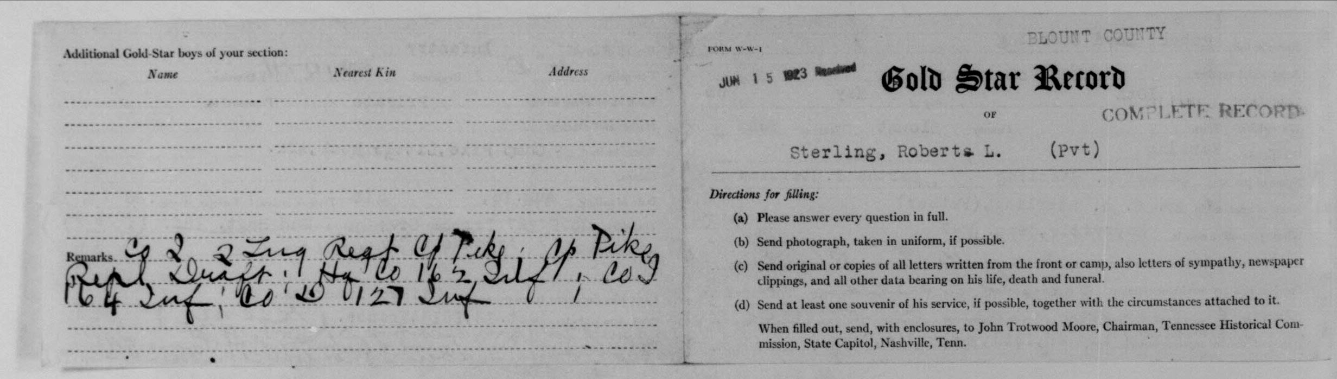 Additional Gold-Star boys of your section:
Name Nearest Kin Address
Remarks Co 2 2 Trng Regt Cp Pike; Cp Pike
Repl Draft; Hq Co 162 Inf; Co I
164 Inf; Co D 127 Inf
BLOUNT COUNTY
FORM W-W-1
JUN 15 1923 Received
Gold Star Record
OF
COMPLETE RECORD
Sterling, Roberts L. (Pvt)
Directions for filling:
(a) Please answer every question in full.
(b) Send photograph, taken in uniform, if possible.
(c) Send original or copies of all letters written from the front or camp, also letters of sympathy, newspaper
clippings, and all other data bearing on his life, death and funeral.
(d) Send at least one souvenir of his service, if possible, together with the circumstances attached to it.
When filled out, send, with enclosures, to John Trotwood Moore, Chairman, Tennessee Historical Com-
mission, State Capitol, Nashville, Tenn.